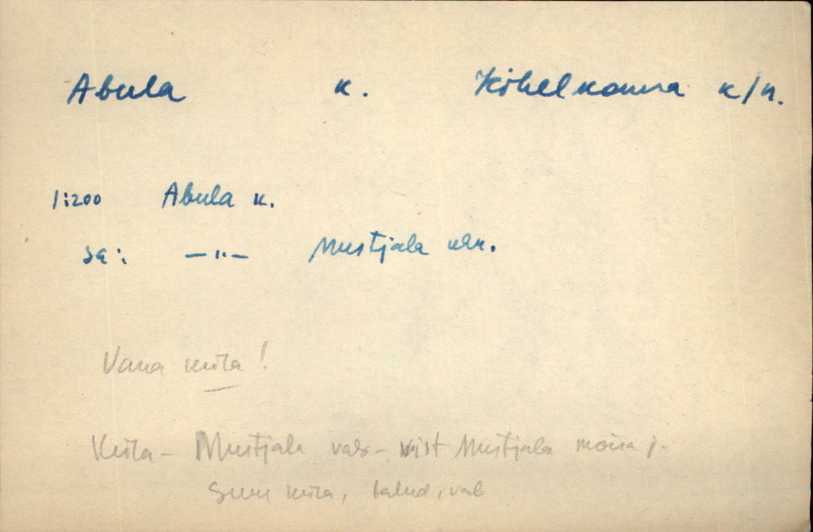 Abula k. Kihelkonna k/n.
1:200 Abula k.
sa: —"— Mustjala vln.
Vana küla!
Küla - Mustjala val - vist Mustjala mõisa j.
Suur küla, talud, val